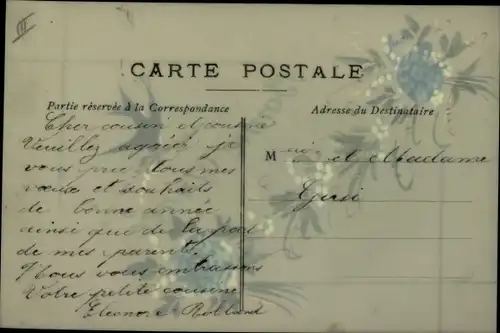 III
CARTE POSTALE
Partie réservée à la Correspondance
Adresse du Destinataire
Cher cousin et cousine
Veuillez agréer je
vous prie tous mes
vœux et souhaits
de bonne année
ainsi que de la part
de mes parents.
Nous vous embrassons
Votre petite cousine
Eleonore Rolland
M et Madame